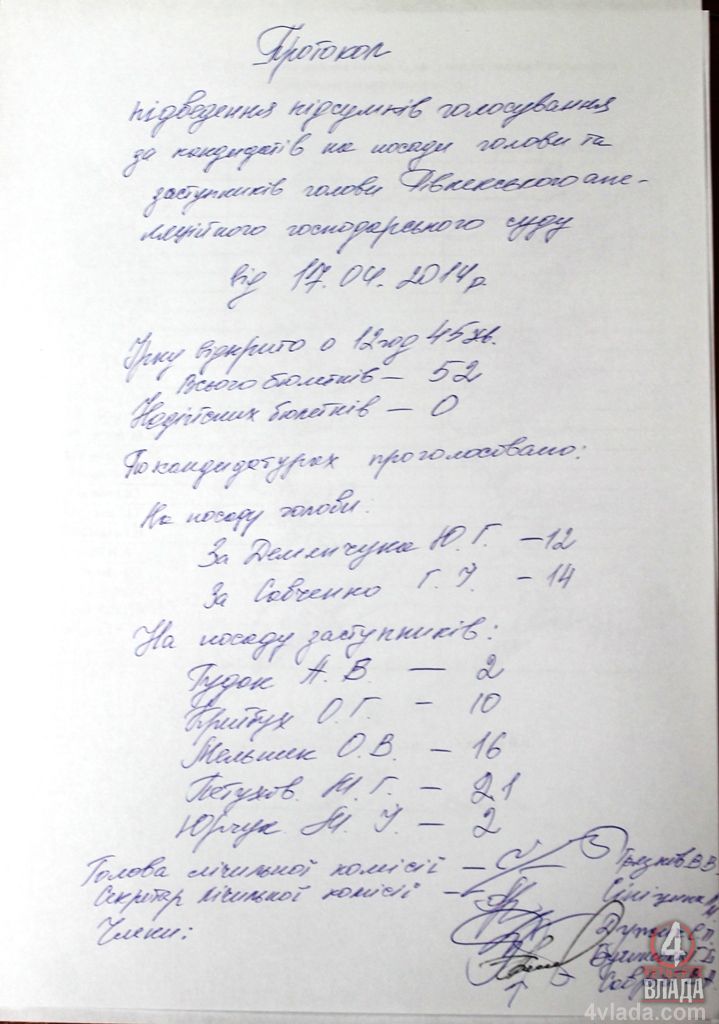 Протокол
підведення підсумків голосування
за кандидатів на посади голови та
заступників голови Рівненського апе-
ляційного господарського суду
від 17.04.2014р.
Урну відкрито о 12год 45хв.
Всього бюлетнів — 52
Недійсних бюлетнів — 0
По кандидатурах проголосовано:
На посаду голови:
За Демянчука Ю.Г. — 12
За Савченко Г.І. — 14
На посаду заступників:
Гудак А.В. — 2
О.Г. — 10
Мельник О.В. — 16
Петухов М.Г. — 21
Юрчук М.І. — 2
Голова лічильної комісії —
Секретар лічильної комісії —
Члени:
4
ВЛАДА
4vlada.com